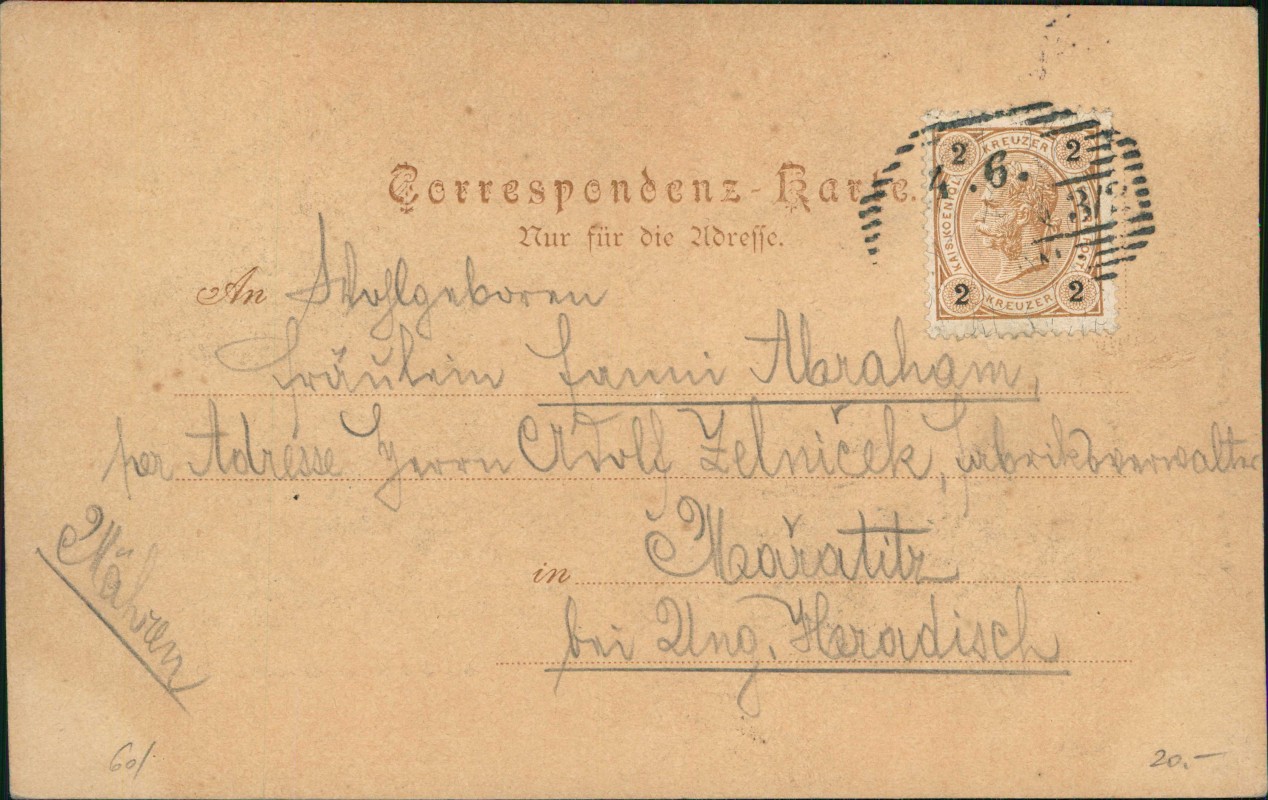 Correspondenz-Karte.
Nur für die Adresse.
2 KREUZER 2
KAIS. KOEN. OEST. POST.
2 KREUZER 2
4.6.
3/
An Wohlgeboren
Fräulein Fanni Abraham,
per Adresse Herrn Adolf Zelníček, Fabriksverwalter
in Mařatitz
bei Ung. Hradisch
Mähren
60/
20.-